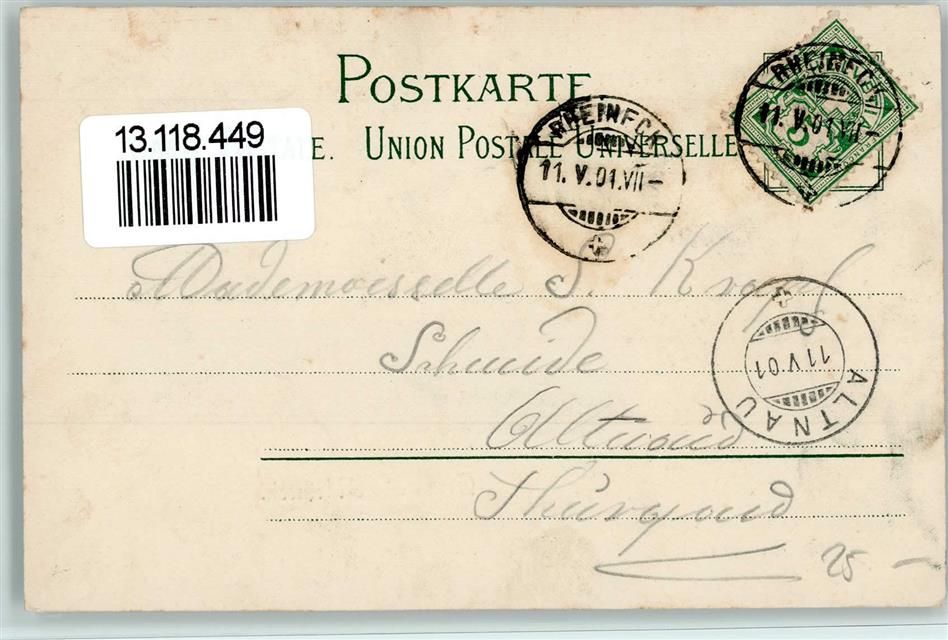 POSTKARTE
13.118.449
ALE. UNION POSTALE UNIVERSELLE
RHEINFC
11. V. 01. VII –
RHEINFC
11. V. 01 VII –
Mademoiselle S.
Schmide
ALTNAU
11 V 01
Altnau
Thurgau
25 –